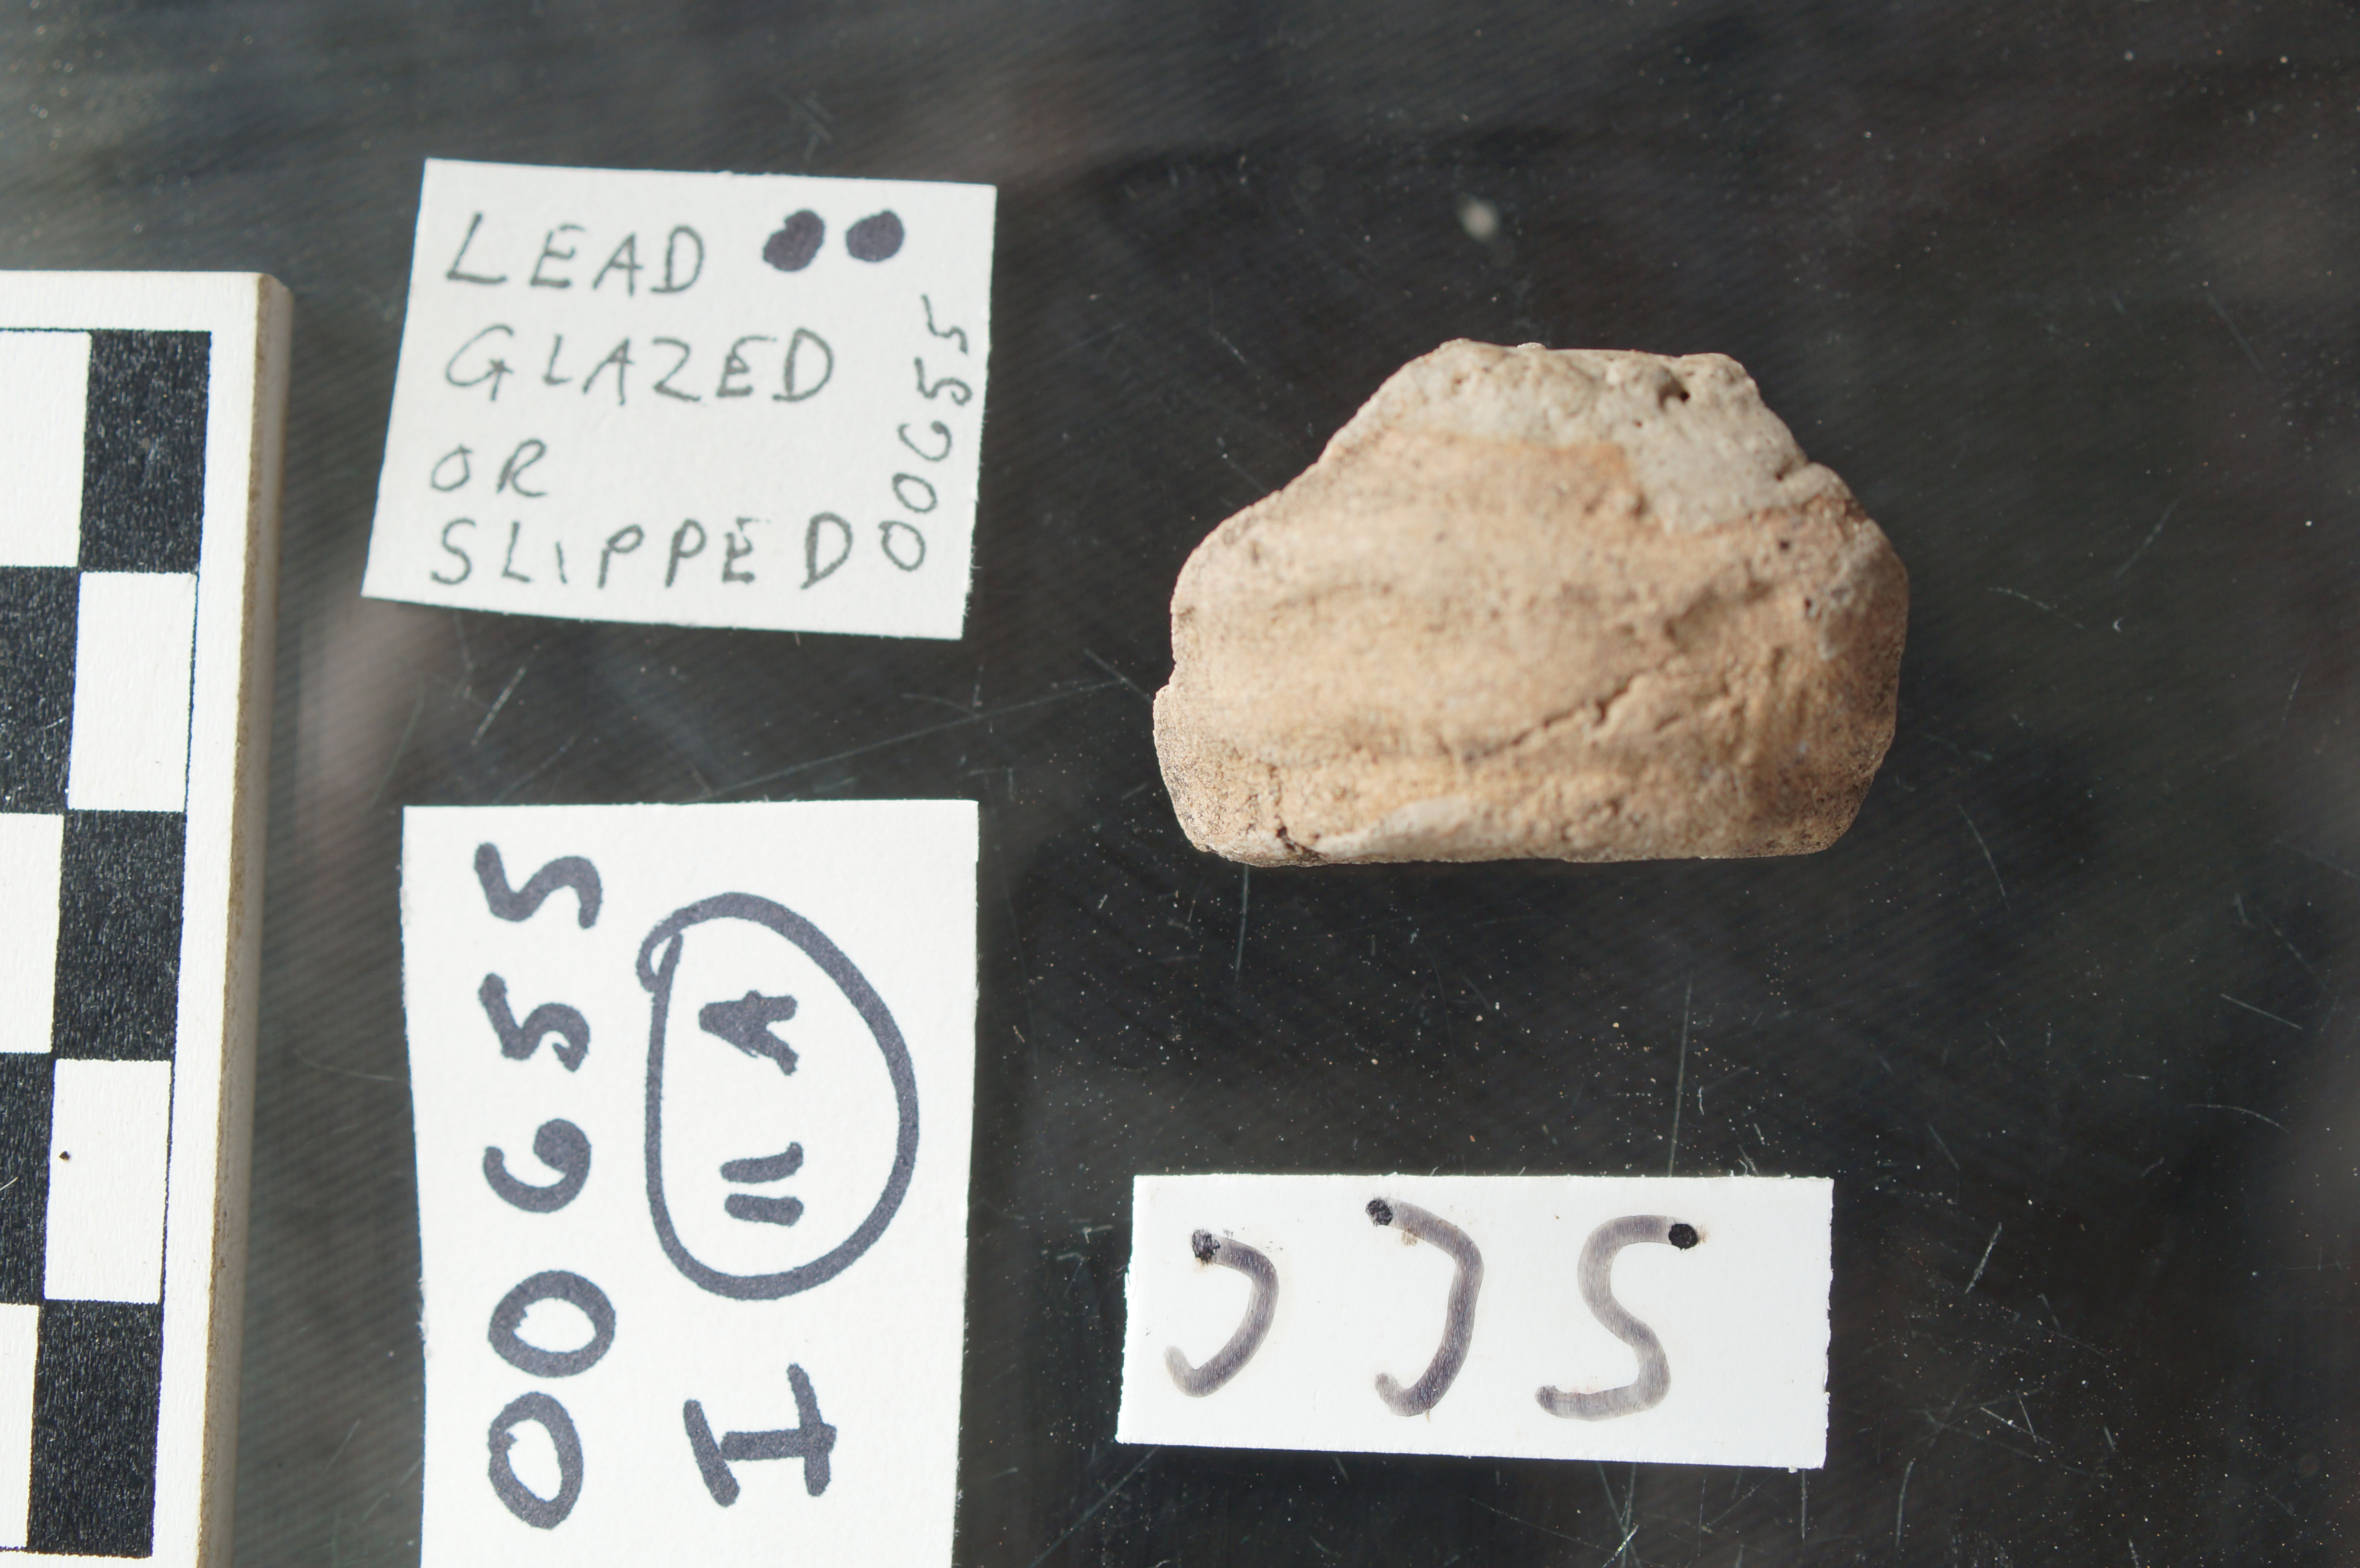 LEAD
GLAZED
OR
SLIPPED
00G55
00G55
I 11 A
SCC